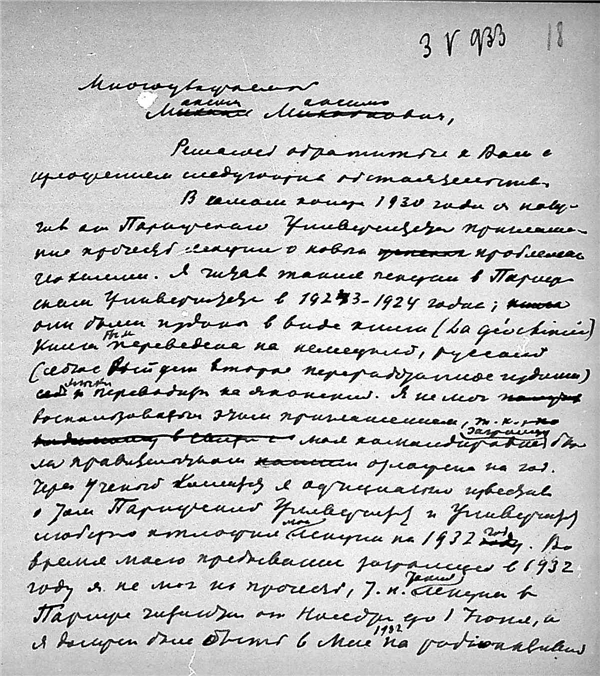 3 V 933 18
Многоуважаемый
Максим Максимович,
Решаюсь обратиться к Вам с
следующим обстоятельством
В самом конце 1930 года я полу-
чил от Парижского Университета приглаше-
ние прочесть лекции о новых проблемах
геохимии. Я читал такие лекции в Париж-
ском Университете в 1923-1924 годах;
они были изданы в виде книги (La géochimie)
Книга переведена на немецкий, русский
(сейчас выйдет второе переработанное издание)
и переводится на японский. Я не мог
воспользоваться этим приглашением, т. к.
моя командировка заграницу бы-
ла правительством отложена на год.
Через Ученый Комитет я официально известил
о том Парижский Университет и Университет
любезно отложил мои лекции на 1932 год. Во
время моего пребывания заграницей в 1932
году я не мог их прочесть, т. к. лекции в
Париже читаются от Ноября до 1 Июня, а
я должен был быть в Мае 1932 на